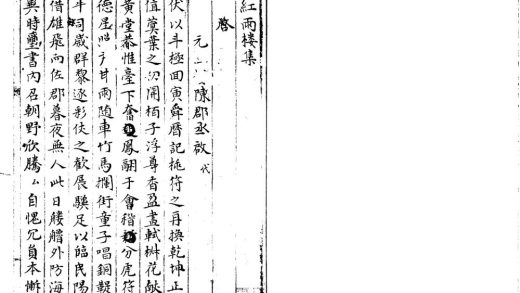 紅雨樓集
啓
元　陳郡丞啟　代
伏以斗極回寅舜曆記桃符之再換乾坤正
值蓂葉之初開栢子浮尊香盈畫軾椒花獻
黃堂恭惟臺下奮鳳翮于會稽分虎符
德星照　甘雨隨車竹馬攔街童子唱銅鞮
斗司歲群黎逐彩仗之歡展驥足以臨民陽
借雄飛向佐郡暮夜無人此日艛艚外防海
與時璽書內召朝野欣騰　自愧冗員本慚